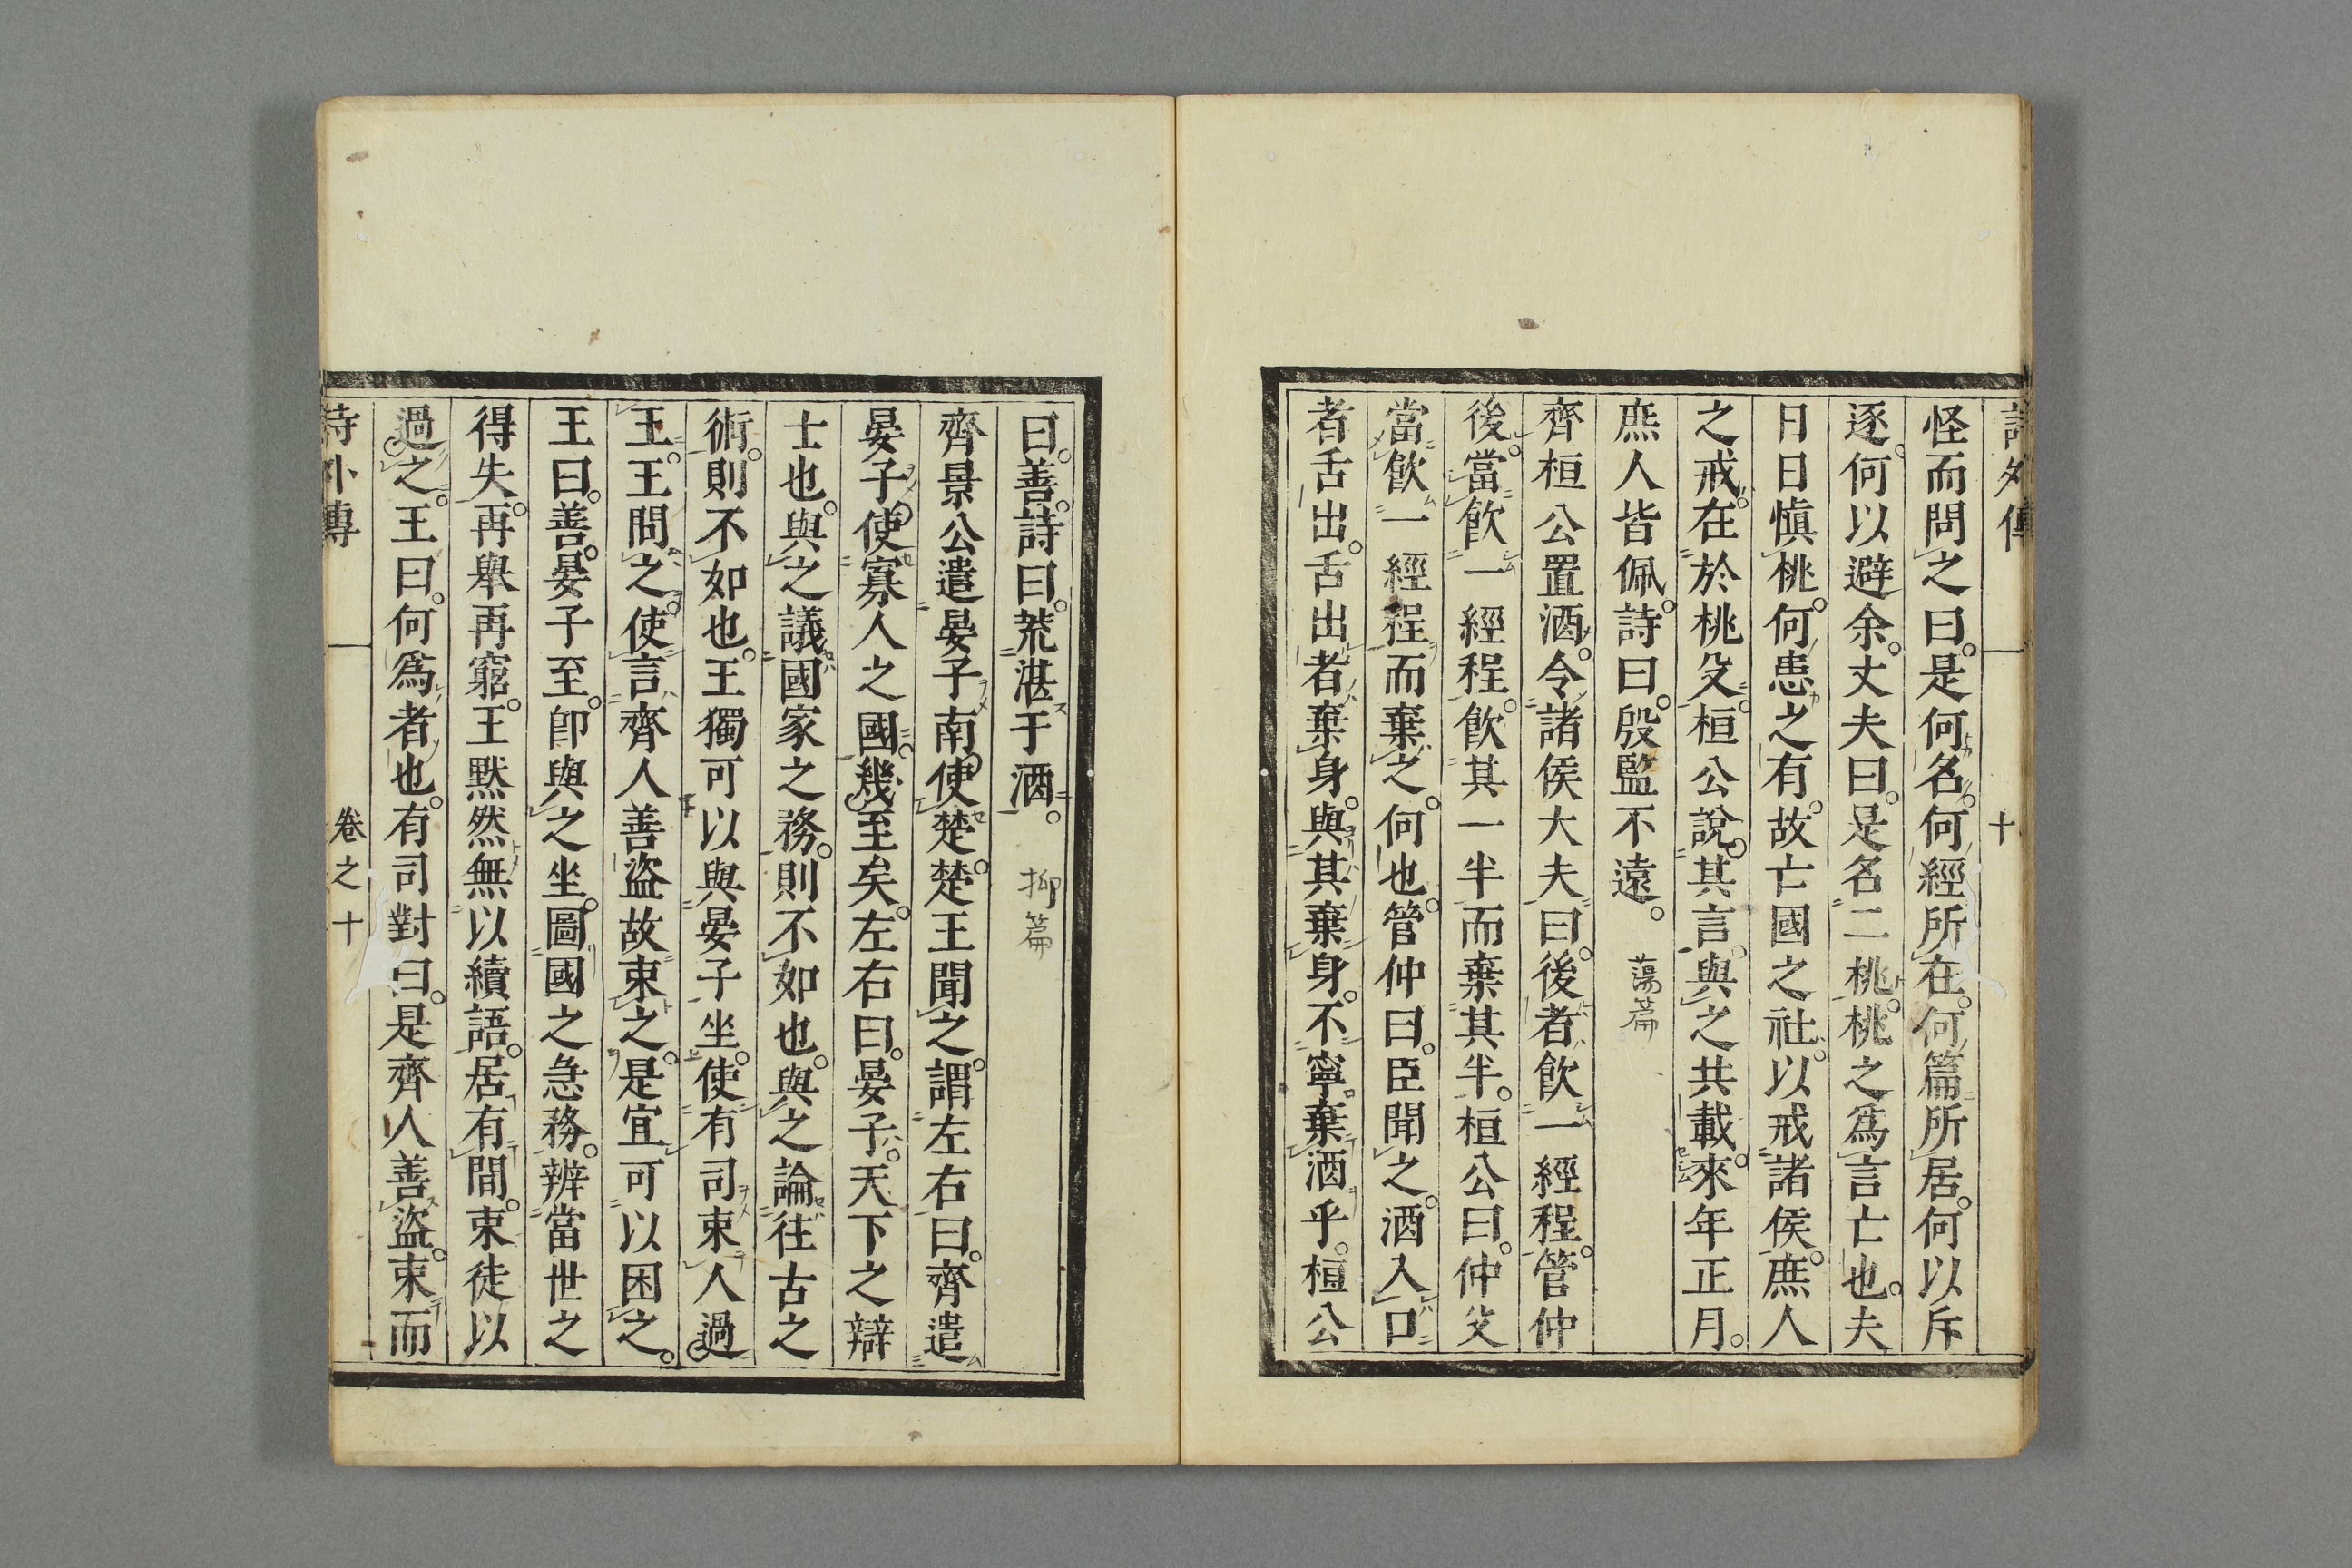 詩外傳
十
怪而問之曰。是何名。何經所在。何篇所居。何以斥
逐。何以避余。丈夫曰。是名二桃。桃之爲言亡也。夫
日日慎桃。何患之有。故亡國之社。以戒諸侯。庶人
之戒。在於桃殳。桓公說。其言。與之共載。來年正月。
庶人皆佩。詩曰。殷監不遠。 蕩篇
齊桓公置酒。令諸侯大夫曰。後者飲一經程。管仲
後。當飲一經程。飲其一半而棄其半。桓公曰。仲父
當飲一經程而棄之。何也。管仲曰。臣聞之。酒入口
者舌出。舌出者棄身。與其棄身。不寧棄酒乎。桓公
曰。善。詩曰。荒湛于酒。 抑篇
齊景公遣晏子南使楚。楚王聞之。謂左右曰。齊遣
晏子使寡人之國。幾至矣。左右曰。晏子。天下之辯
士也。與之議國家之務。則不如也。與之論往古之
術。則不如也。王獨可以與晏子坐。使有司束人過
王。王問之。使言齊人善盜故束之。是宜可以困之。
王曰。善。晏子至。卽與之坐。圖國之急務。辨當世之
得失。再舉再窮。王默然無以續語。居有間。束徒以
過之。王曰。何爲者也。有司對曰。是齊人善盜。束而
詩外傳
卷之十